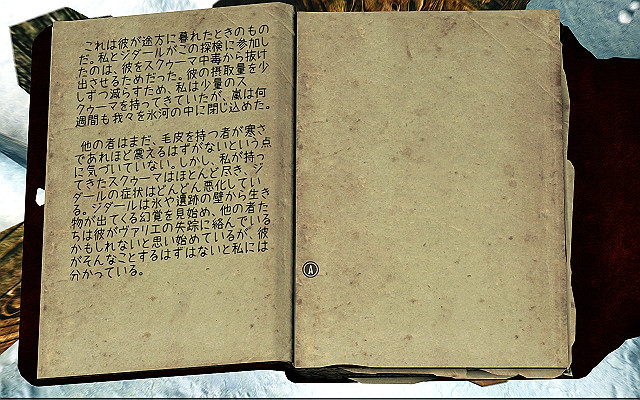 これは彼が途方に暮れたときのもの
だ。私とジダールがこの探検に参加し
たのは、彼をスクゥーマ中毒から抜け
出させるためだった。彼の摂取量を少
しずつ減らすため、私は少量のス
クゥーマを持ってきていたが、嵐は何
週間も我々を氷河の中に閉じ込めた。
他の者はまだ、毛皮を持つ者が寒さ
であれほど震えるはずがないという点
に気づいていない。しかし、私が持っ
てきたスクゥーマはほとんど尽き、ジ
ダールの症状はどんどん悪化してい
る。ジダールは氷や遺跡の壁から生き
物が出てくる幻覚を見始め、他の者た
ちは彼がヴァリエの失踪に絡んでいる
かもしれないと思い始めているが、彼
がそんなことするはずはないと私には
分かっている。
A